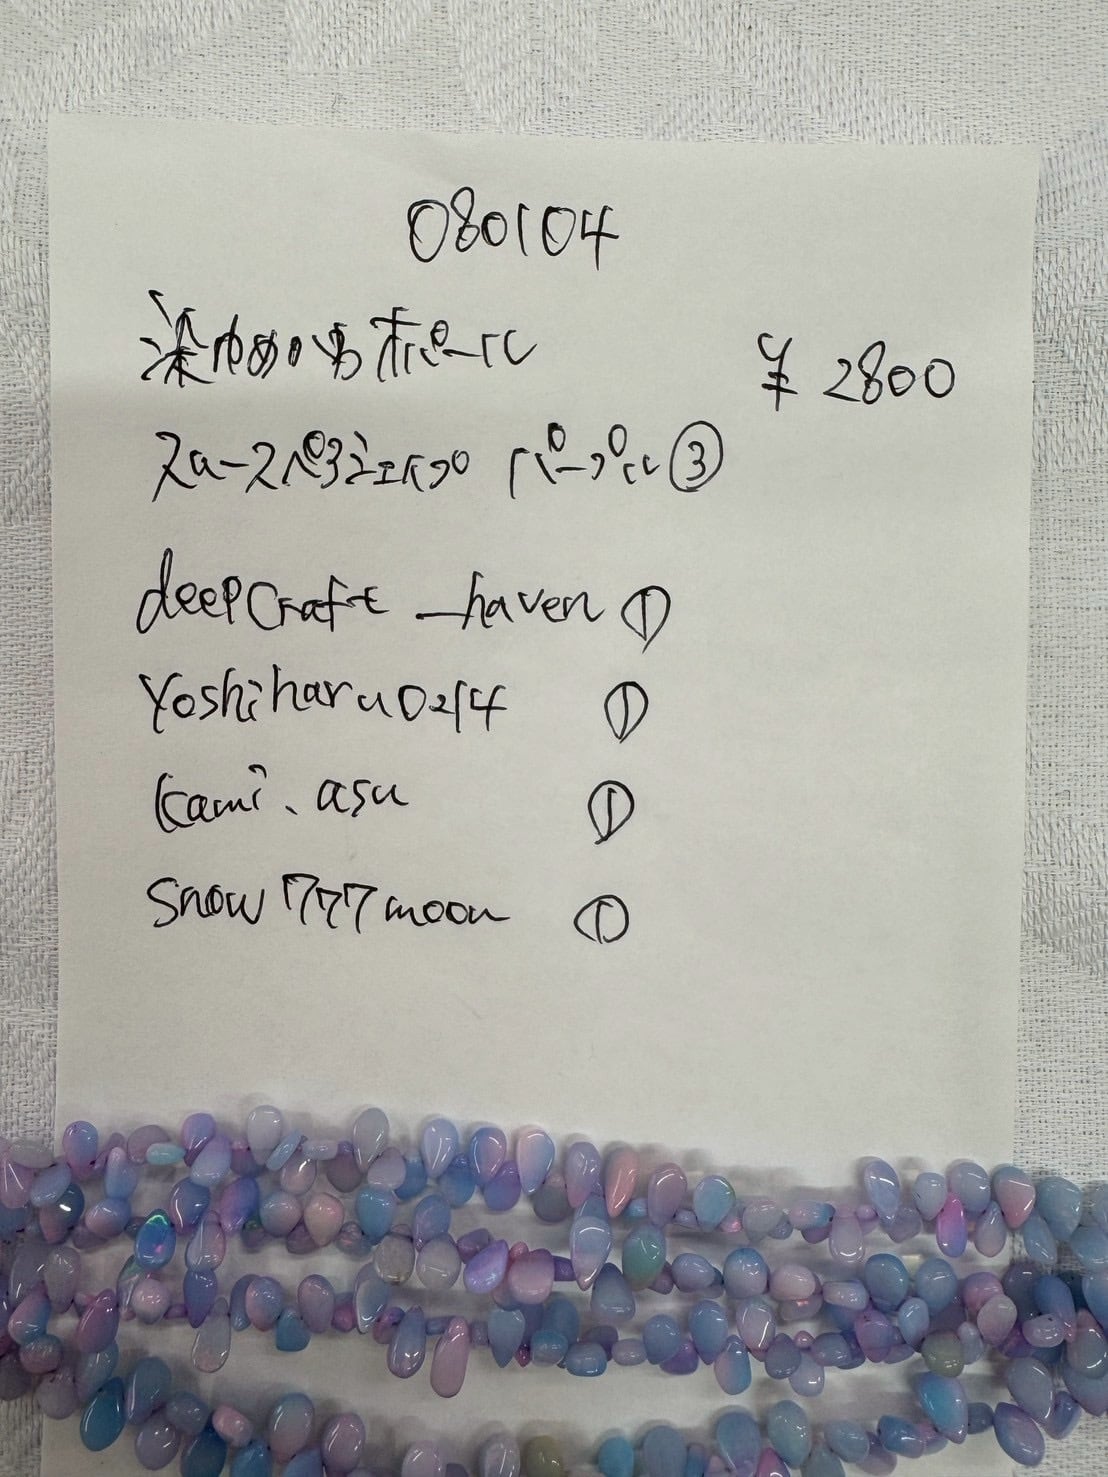 080104
染めオパール
¥2800
パープル③
deepcraft_haven ①
yoshiharu0214 ①
kami.asu ①
snow777moon ①